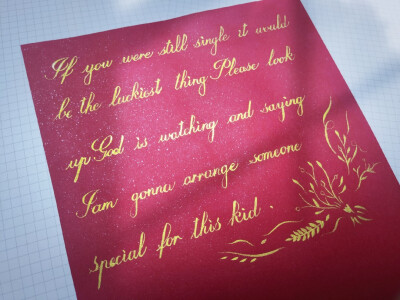 If you were still single it would
be the luckiest thing.Please look
up.God is watching and saying
I am gonna arrange someone
special for this kid .